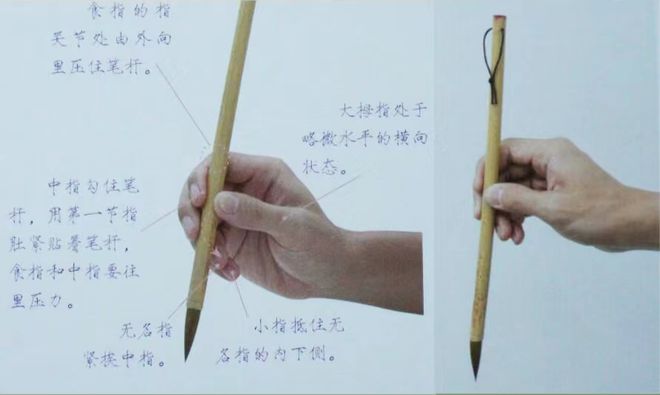 食指的指
关节处由外向
里压住笔杆。
大拇指处于
略微水平的横向
状态。
中指勾住笔
杆，用第一节指
肚紧贴着笔杆，
食指和中指要往
里压力。
无名指
紧挨中指。
小指抵住无
名指的内下侧。